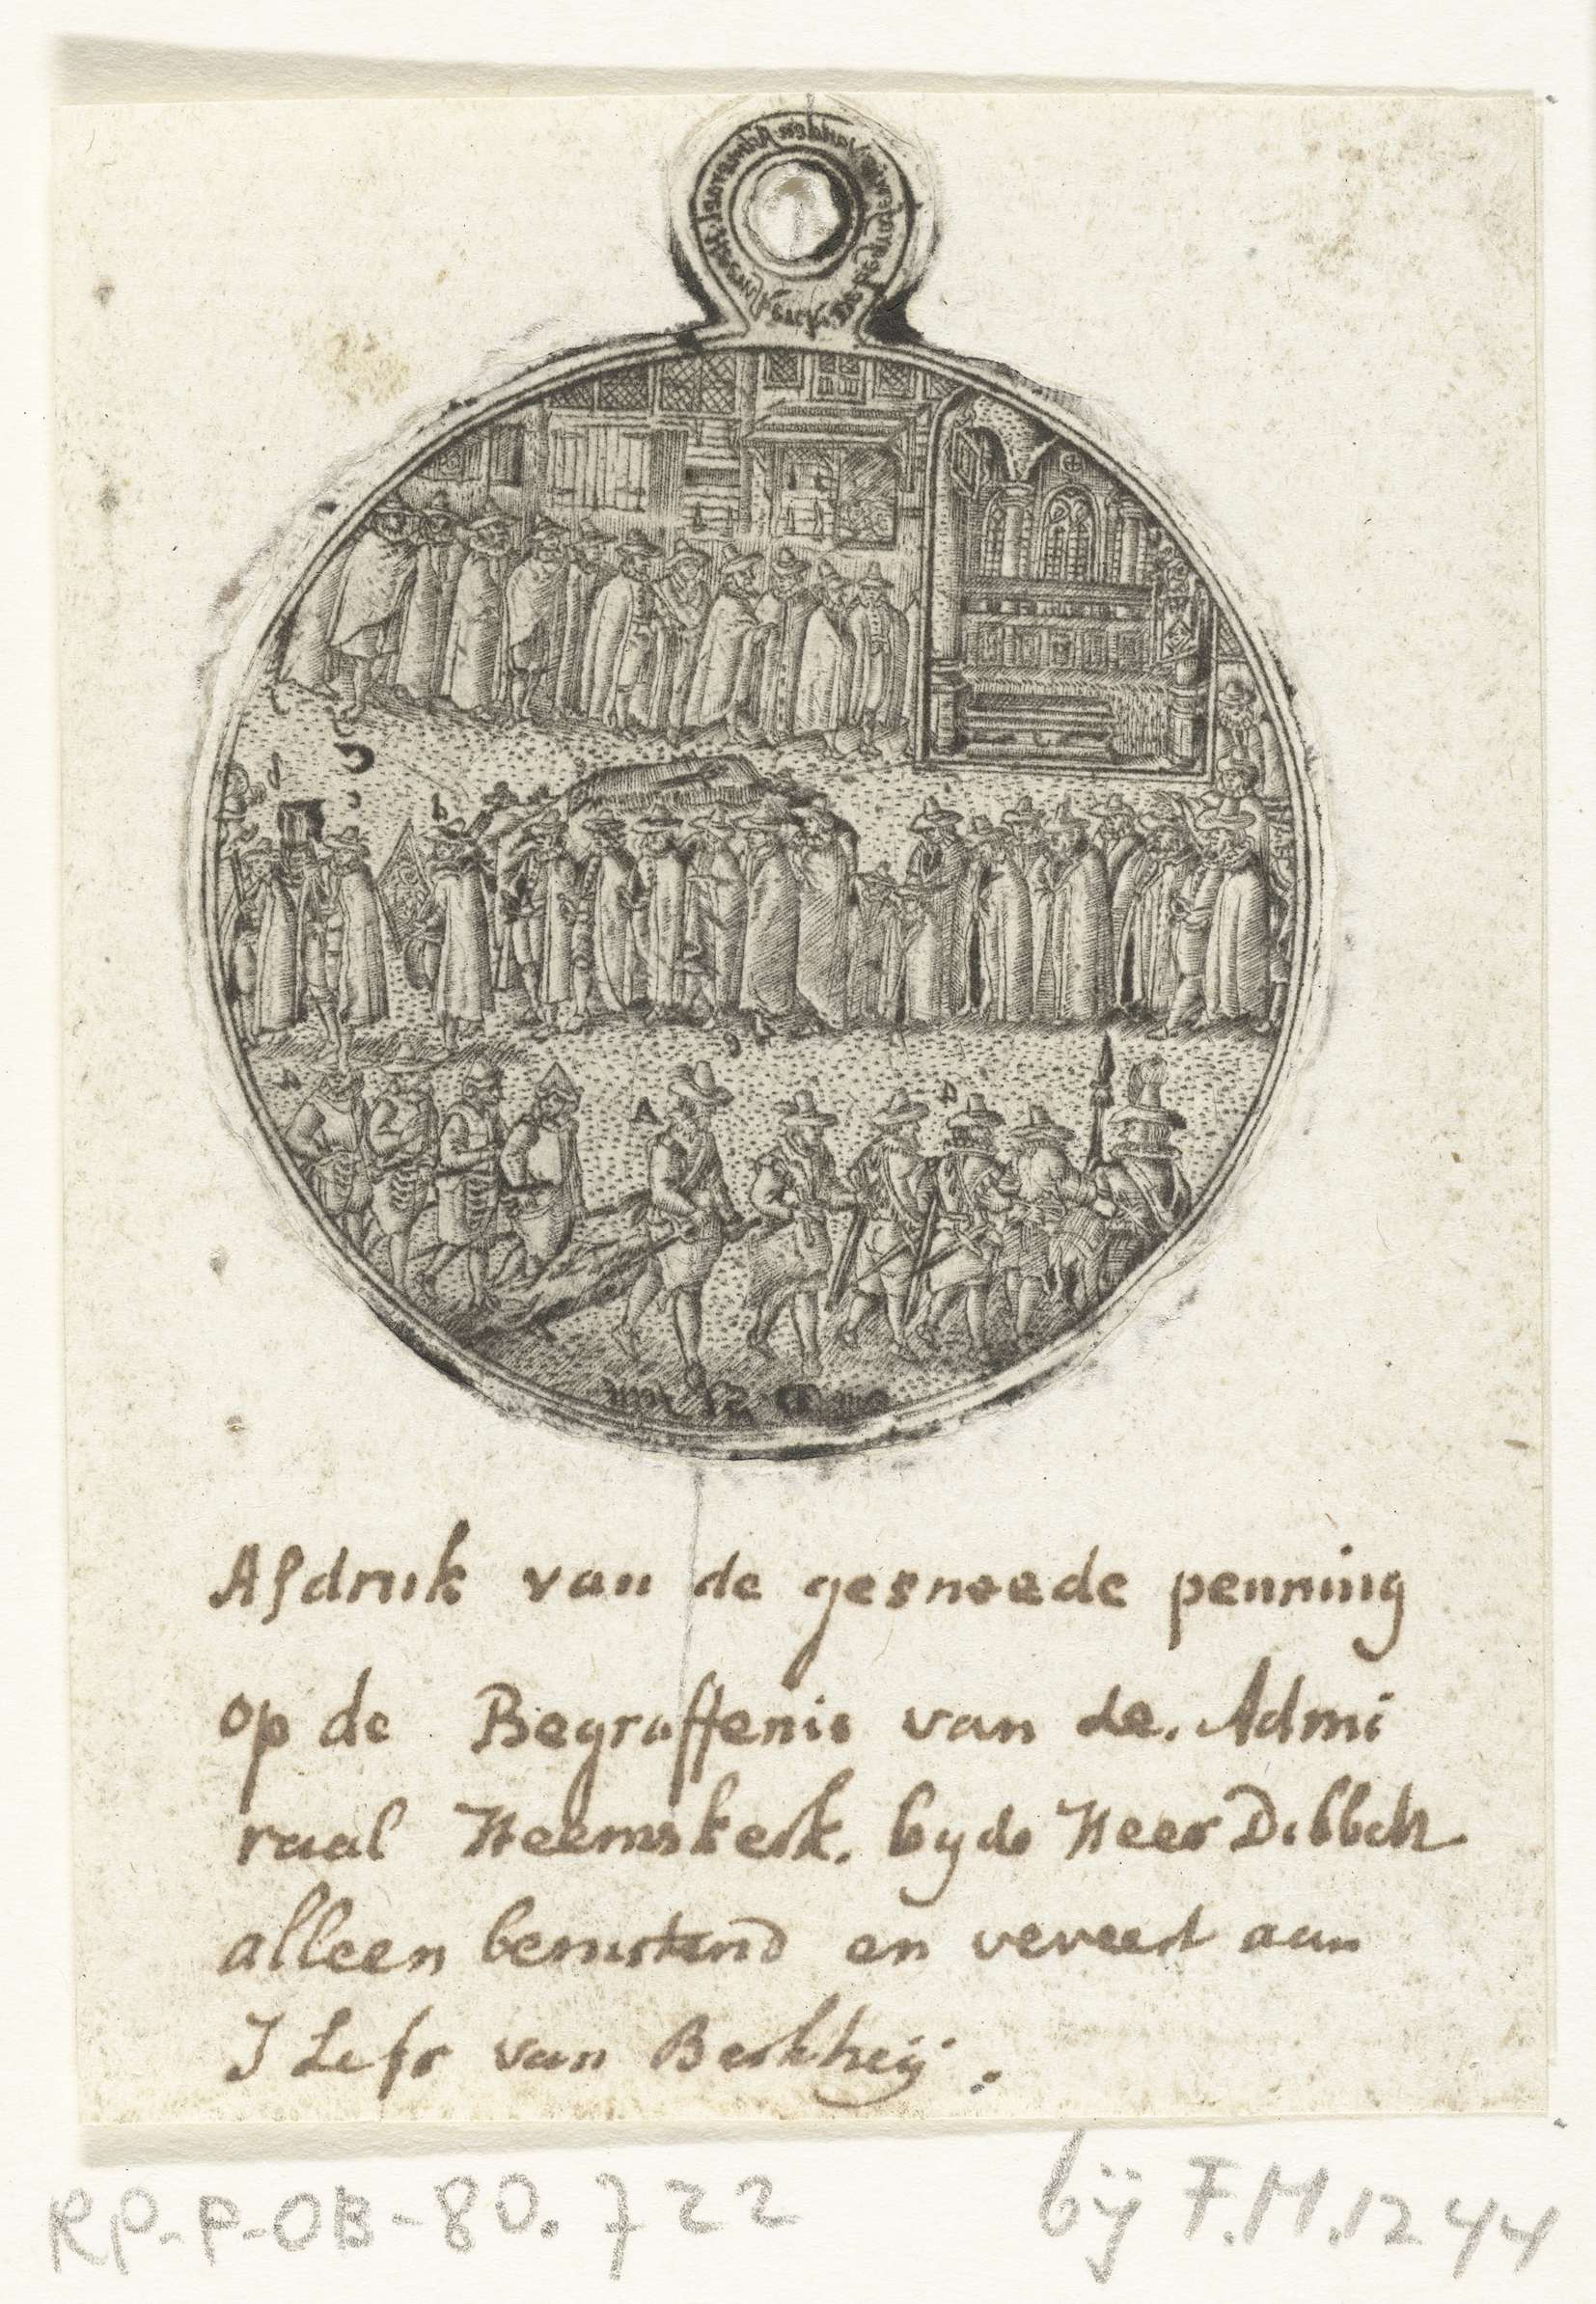 Afdruk van de gesneede penning
op de Begraffenis van de. Admi
raal Heemskerk. by de Heer Dibbetz
alleen berustend en vereerd aan
J Le fr van Berkheij.
RP-P-OB-80.722
bij F.M.1244